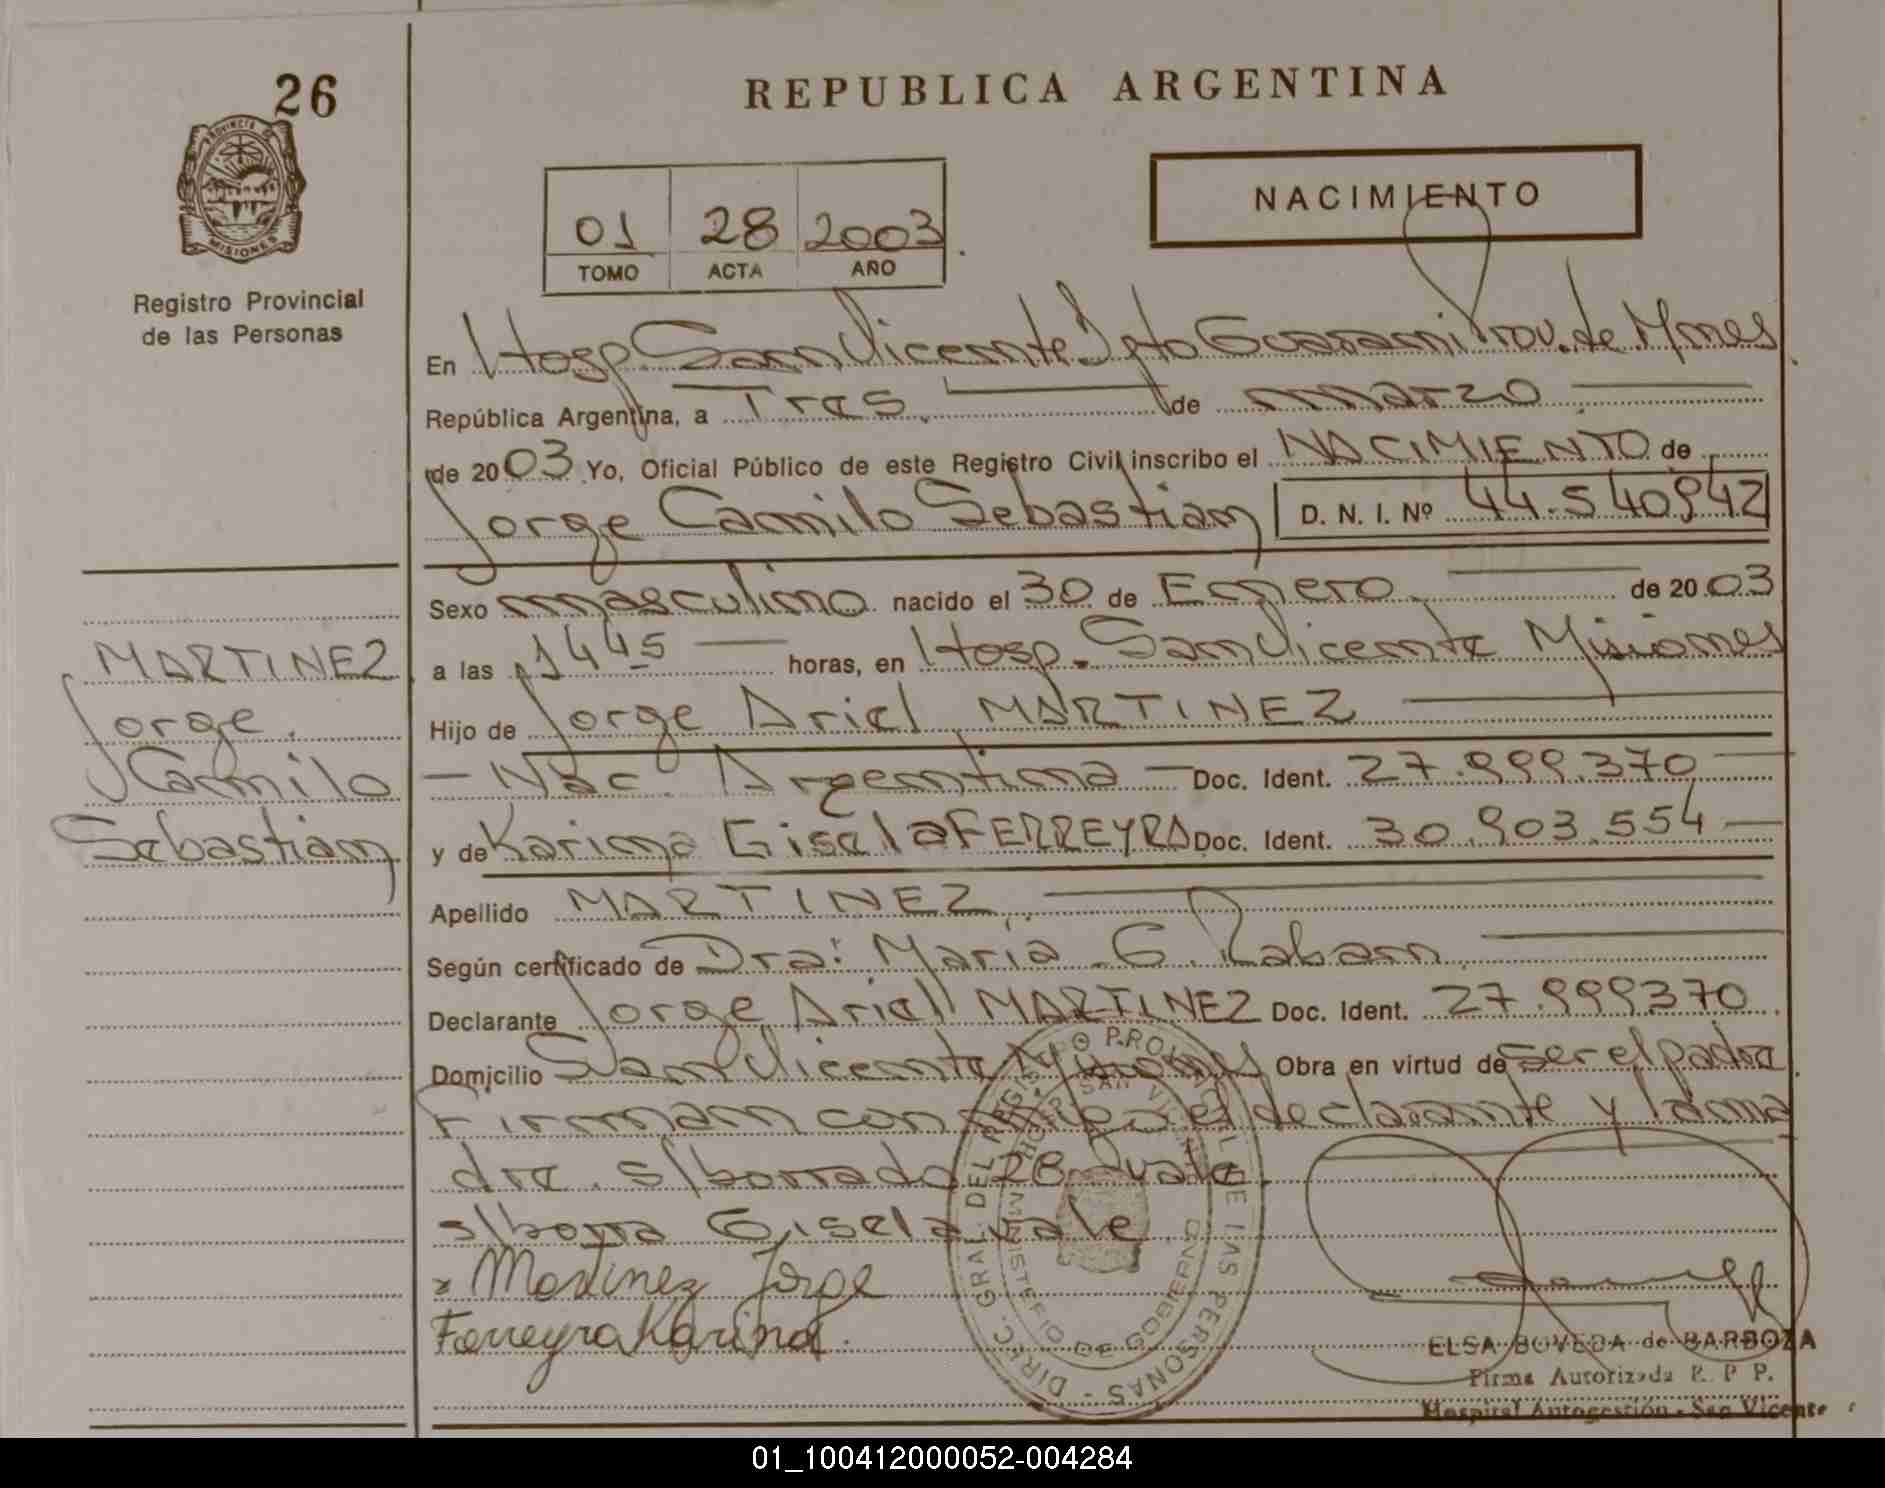 26
PROVINCIA DE
MISIONES
Registro Provincial
de las Personas
REPUBLICA ARGENTINA
01 28 2003
TOMO ACTA AÑO
NACIMIENTO
En Hosp. San Vicente Dpto Guarani Prov. de Mnes
República Argentina, a Tres de marzo
de 2003 Yo, Oficial Público de este Registro Civil inscribo el NACIMIENTO de
Jorge Camilo Sebastian D. N. I. Nº 44.540942
Sexo masculino nacido el 30 de Enero de 2003
a las 1445 horas, en Hosp. San Vicente Misiones
Hijo de Jorge Ariel MARTINEZ
- Nac. Argentina - Doc. Ident. 27.999.370
y de Karina Gisela FERREYRA Doc. Ident. 30.903.554
Apellido MARTINEZ
Según certificado de Dra: Maria G. Raban
Declarante Jorge Ariel MARTINEZ Doc. Ident. 27.999370
Domicilio San Vicente Misiones Obra en virtud de ser el padre
Firman conmigo el declarante y la ma
dre. s/borrado 28 vale.
s/borra Gisela vale.
x Martinez Jorge
Ferreyra Karina.
MARTINEZ
Jorge
Camilo
Sebastian
DIREC. GRAL. DEL REGISTRO PROVINCIAL DE LAS PERSONAS
HOSP. SAN VICENTE
MINISTERIO DE GOBIERNO
ELSA BOVEDA de BARBOZA
Firma Autorizada R. P. P.
Hospital Autogestión - San Vicente
01_100412000052-004284